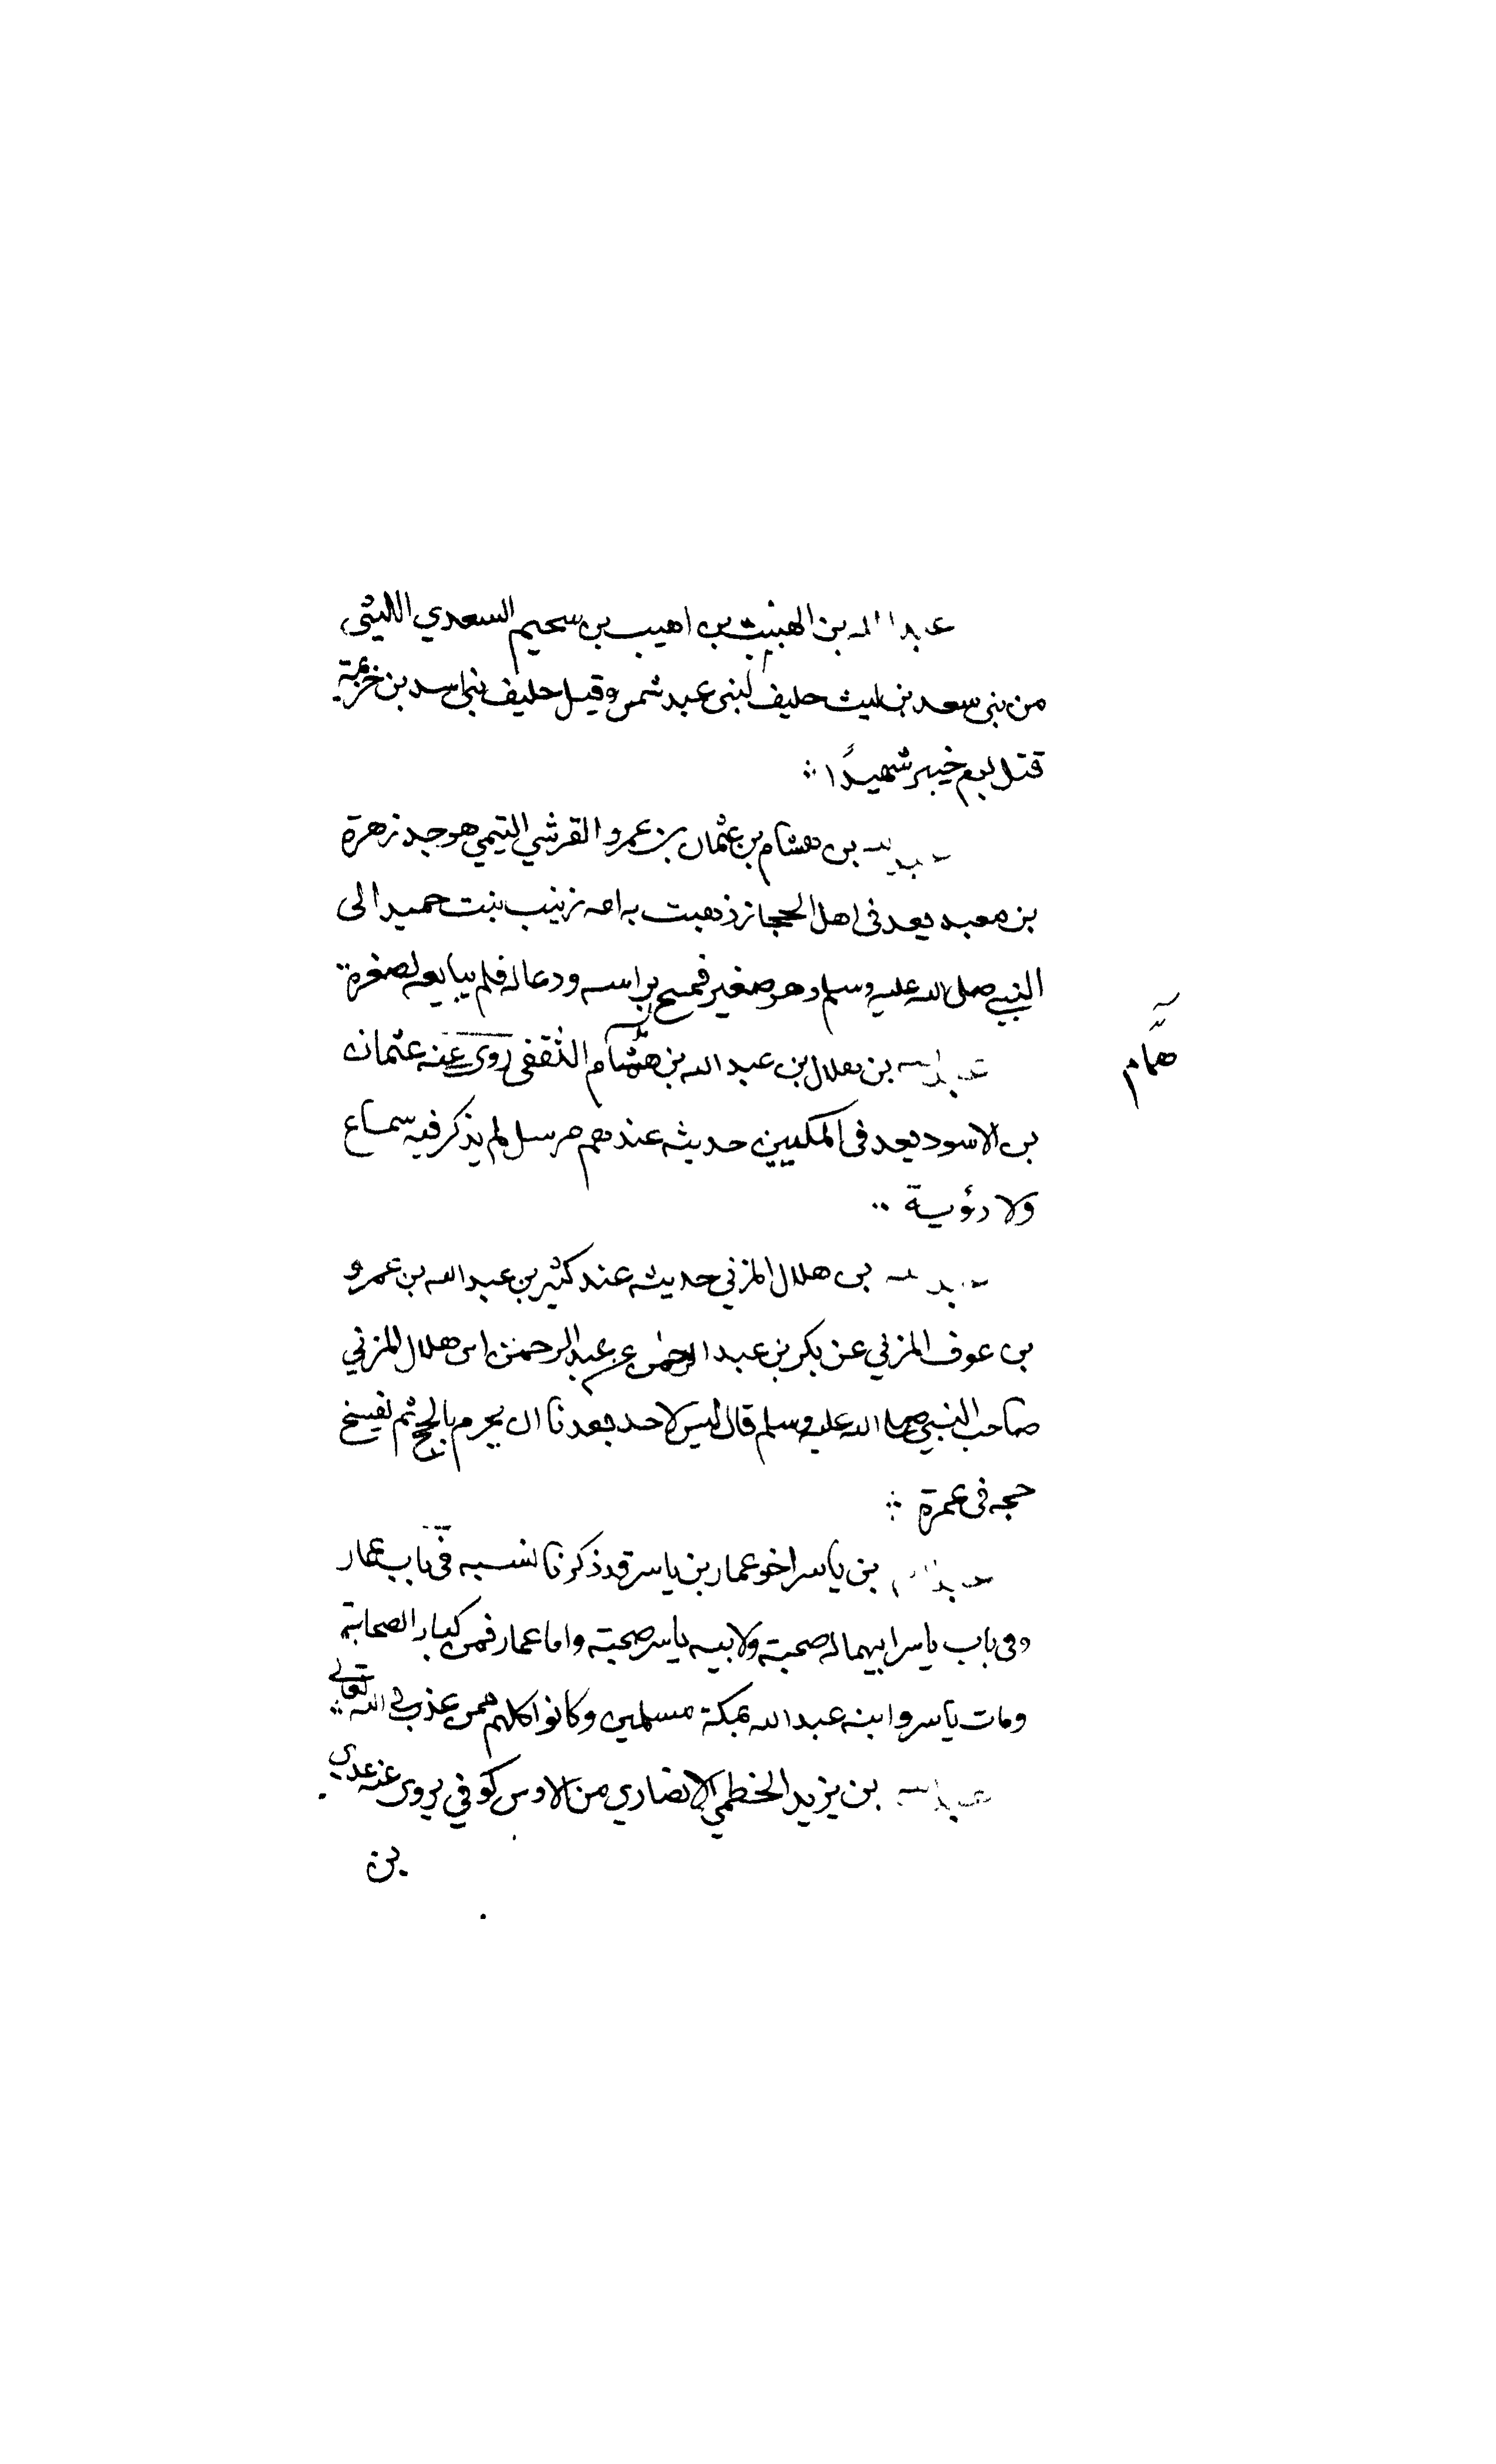 عبد الله بن الهبيب بن اهيب بن سحيم السعدي الليثي
من بني سعد بن ليث حليف لبني عبد شمس وقيل حليف بني اسد بن خزيمة
قتل يوم خيبر شهيدًا
عبد الله بن هشام بن عثمان بن عمرو القرشي التيمي هو جد زهرة
بن معبد يعد في اهل الحجاز ذهبت به امه زينب بنت حميد الى
النبي صلى الله عليه وسلم وهو صغير فمسح براسه ودعا له فلم يبايعه لصغره
عبد الله بن هلال بن عبد الله بن هشام الثقفي روى عنه عثمان
همام
بن الاسود يعد في المكيين حديثه عندهم مرسل لم يذكر فيه سماع
ولا رؤية
عبد الله بن هلال المزني حديثه عند كثير بن عبد الله بن عمرو
بن عوف المزني عن بكر بن عبد الرحمن عن عبد الرحمن ابن هلال المزني
صاحب النبي صلى الله عليه وسلم قال ليس لاحد بعدنا ان يحرم بالحج ثم يفسخ
حجه في عمرة
عبد الله بن ياسر اخو عمار بن ياسر قد ذكرنا نسبه في باب عمار
وفي باب ياسر ابيهما له صحبة ولابيه ياسر صحبة واما عمار فمن كبار الصحابة
ومات ياسر وابنه عبد الله بمكة مسلمين وكانوا كلهم ممن عذب في الله تعالى
عبد الله بن يزيد الخطمي الانصاري من الاوس كوفي يروي عنه عدي
بن